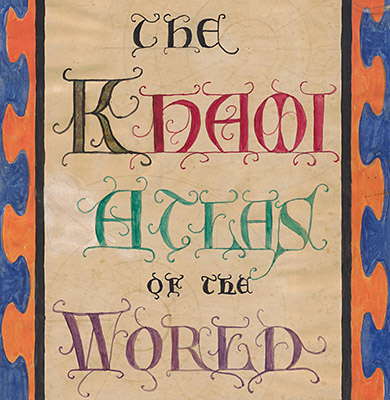 THE
KHAMI
ATLAS
OF THE
WORLD